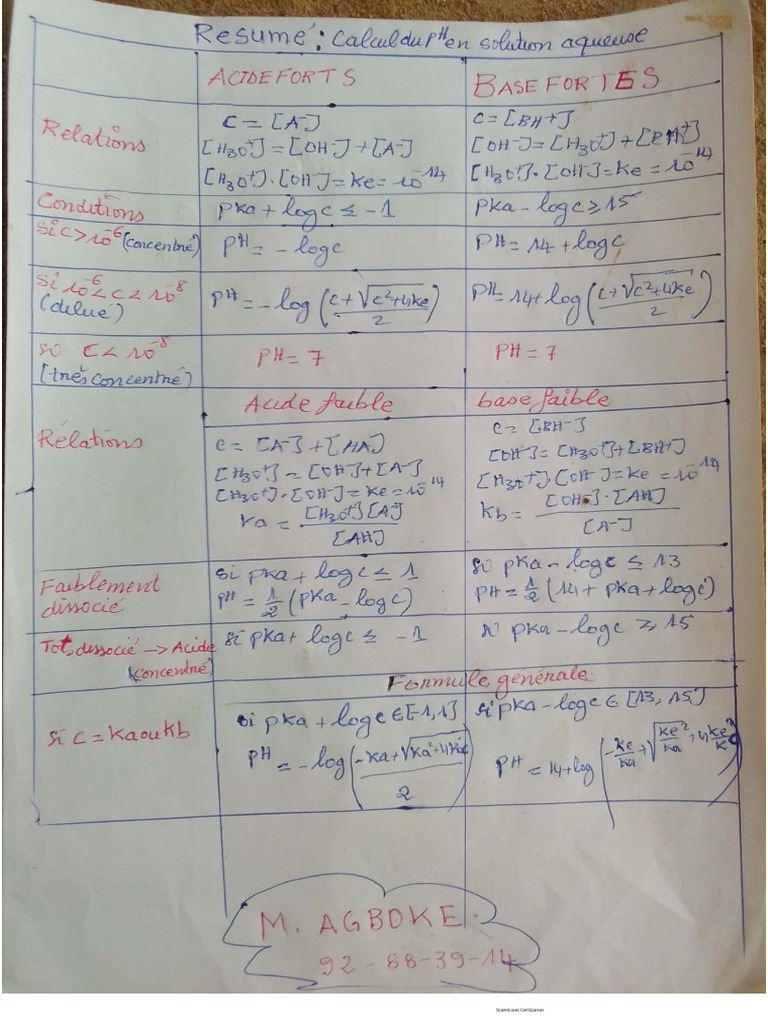 Resumé : Calcul du pH en solution aqueuse
ACIDE FORTS
BASE FORTES
Relations
C = [A-]
[H3O+] = [OH-] + [A-]
[H3O+] . [OH-] = Ke = 10^-14
C = [BH+]
[OH-] = [H3O+] + [BH+]
[H3O+] . [OH-] = Ke = 10^-14
Conditions
pKa + logc ≤ -1
pKa - logc ≥ 15
si C > 10^-6 (concentré)
pH = - logc
pH = 14 + logc
Si 10^-6 < c < 10^-8
(dilué)
pH = -log (c + √c²+4Ke / 2)
pH = 14 + log (c + √c²+4Ke / 2)
si C < 10^-8
(très concentré)
PH = 7
PH = 7
Acide faible
base faible
Rélations
c = [A-] + [HA]
[H3O+] = [OH-] + [A-]
[H3O+] . [OH-] = Ke = 10^-14
Ka = [H3O+][A-] / [AH]
C = [BH-]
[OH-] = [H3O+] + [BH+]
[H3O+] . [OH-] = Ke = 10^-14
kb = [OH-] . [AH] / [A-]
Faiblement
dissocié
si pKa + logc ≤ 1
pH = 1/2 (pKa - logc)
si pKa - logc ≤ 13
pH = 1/2 (14 + pKa + logc)
Tot, dissocié → Acide
(concentré)
si pKa + logc ≤ -1
si pKa - logc ≥ 15
Formule générale
si C = Ka ou kb
si pKa + logc ∈ [-1,1]
pH = -log (-Ka + √Ka²+4Kac / 2)
si pKa - logc ∈ [13, 15]
PH = 14 + log
M. AGBOKE
92-88-39-14
Scanné avec CamScanner